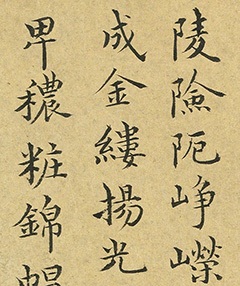 陵險阨崢嶸
成金縷揚光
卑穠粧錦